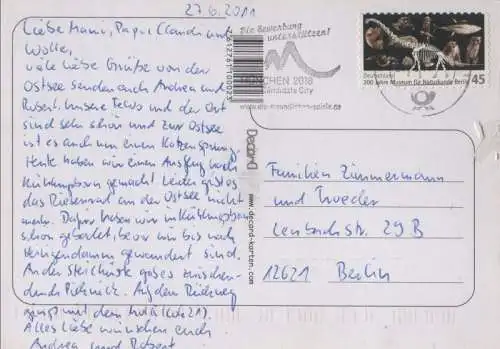 27.6.2011
Liebe Mami, Papa, Claudi und
Wolle,
viele liebe Grüße von der
Ostsee senden euch Andrea und
Robert. Unsere FeWo und der Ort
sind sehr schön und zur Ostsee
ist es auch nur einen Katzensprung.
Heute haben wir einen Ausflug nach
Kühlungsborn gemacht. Leider gibt es
das Riesenrad an der Ostsee nicht
mehr. Dafür haben wir in Kühlungsborn
schon gebadet, bevor wir bis nach
Heiligendamm gewandert sind.
An der Steilküste gab es zwischen-
durch Picknick. Auf dem Rückweg
ging's mit dem Molli
Alles Liebe wünschen euch
Andrea und Robert
Die Bewerbung
unterstützen!
MÜNCHEN 2018
Candidate City
Deutschland
200 Jahre Museum für Naturkunde Berlin
45
Decard
www.decard-karten.com
Familien Zimmermann
und
Lenbachstr. 29 B
12621 Berlin